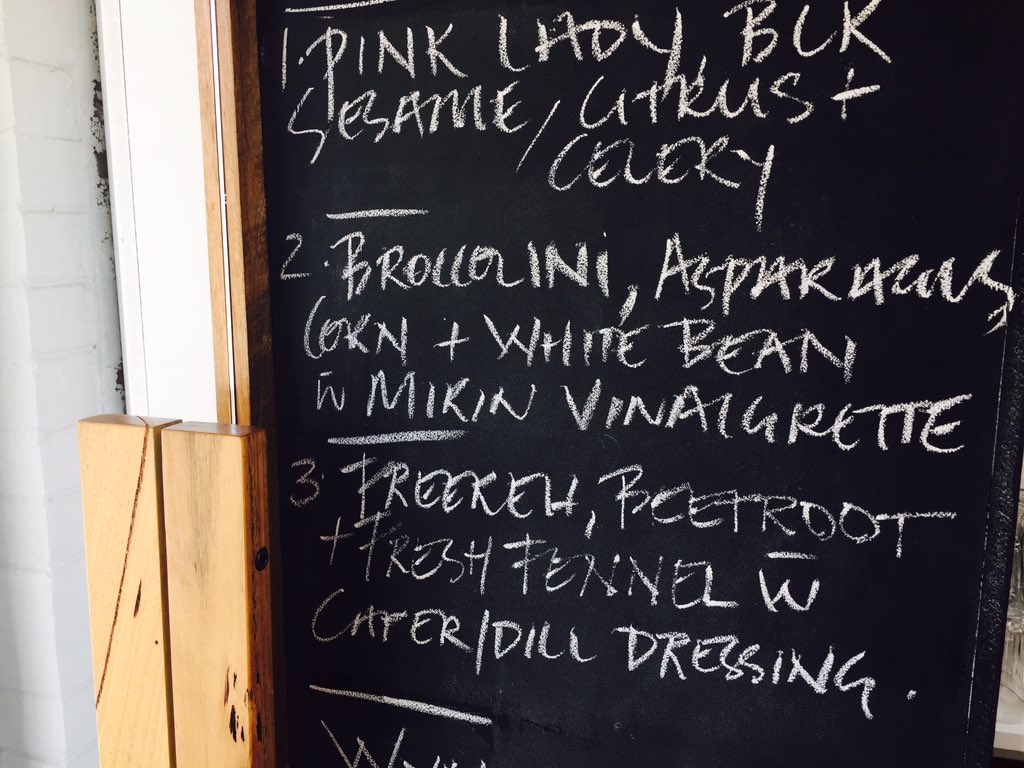 1. PINK LADY, BLK
SESAME, CITRUS +
CELERY
2. BROCCOLINI, ASPARAGUS,
CORN + WHITE BEAN
w̄ MIRIN VINAIGRETTE
3. FREEKEH, BEETROOT
+ FRESH FENNEL w̄
CAPER/DILL DRESSING.